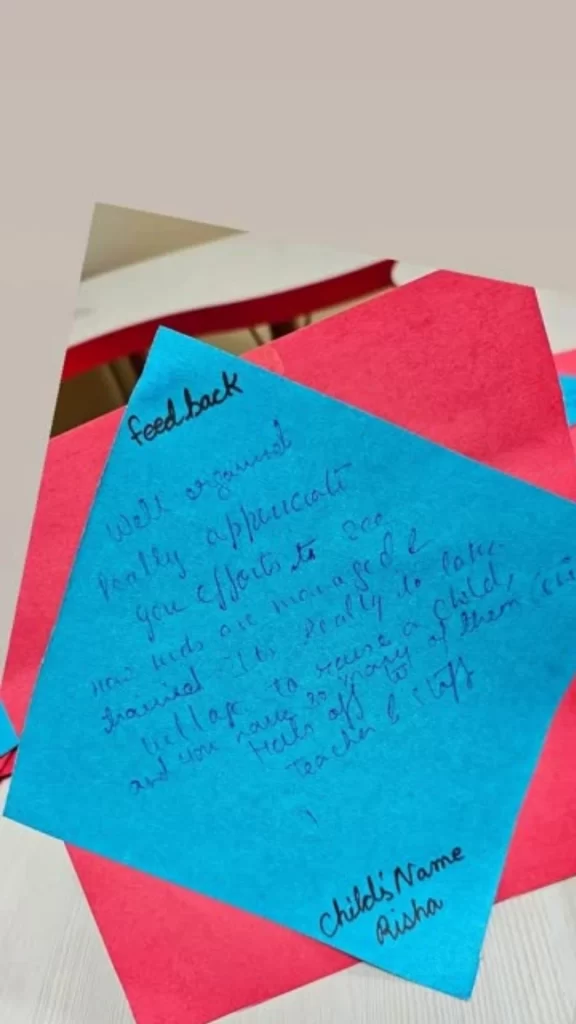 feedback
Well organised
Really appreciate
your efforts to see
how kids are managed &
trained Its really to take
village to raise a child,
and you have so many of them
Hats off to
Teacher & Staff
Child's Name
Risha